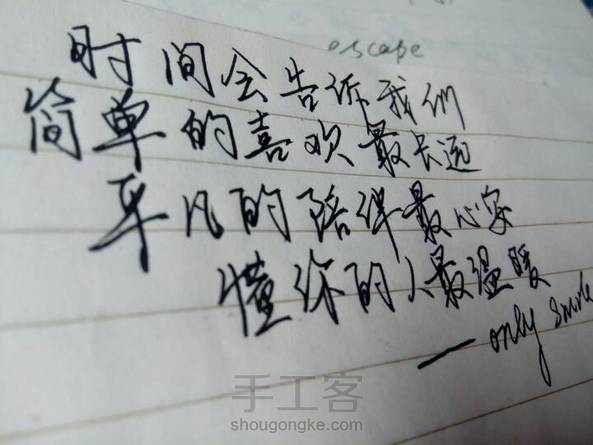 escape
时间会告诉我们
简单的喜欢最长远
平凡的陪伴最心安
懂你的人最温暖
— only smile
手工客
shougongke.com